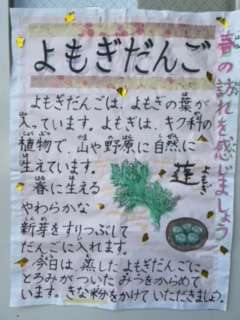 よもぎだんご
春の訪れを感じましょう
よもぎだんごは、よもぎの葉が
入っています。よもぎは、キク科の
植物で、山や野原に自然に
生えています。
春に生える
やわらかな
新芽をすりつぶして
だんごに入れます。
今日は、蒸したよもぎだんごに
とろみがついたみつをからめて
います。きな粉をかけていただきましょう。
蓬
よもぎ